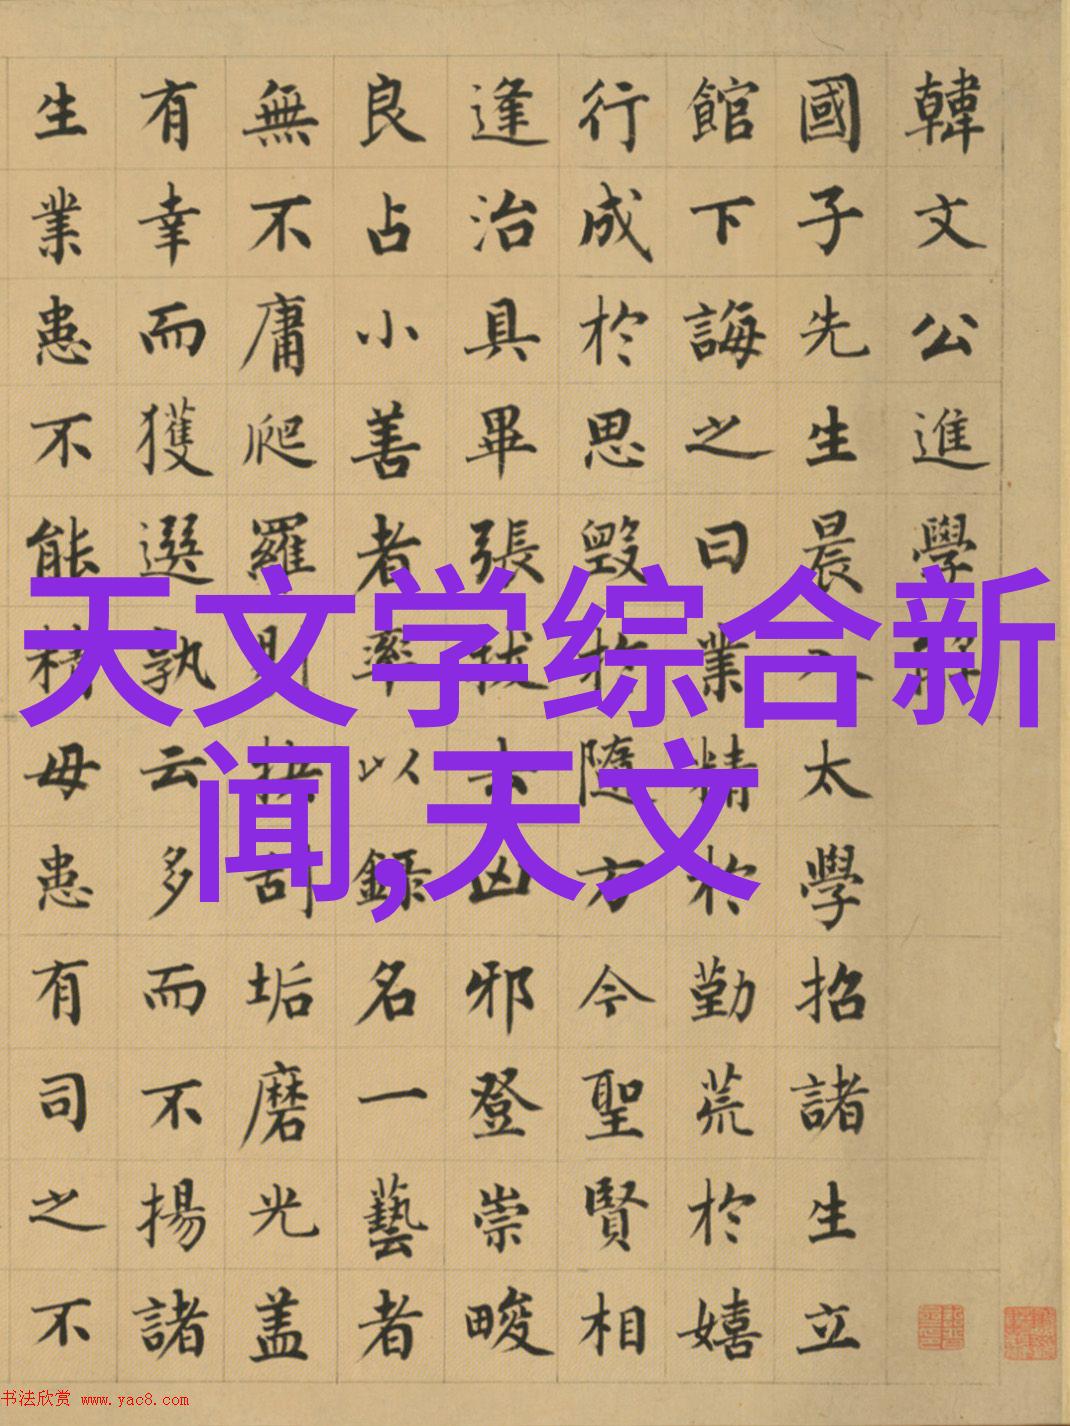 韓文公進學解
國子先生晨入太學招諸生立
館下誨之曰業精於勤荒於嬉
行成於思毀於隨方今聖賢相
逢治具畢張拔去凶邪登崇畯
良占小善者率以錄名一藝者
無不庸爬羅剔抉刮垢磨光盖
有幸而獲選孰云多而不揚諸
生業患不能精毋患有司之不
天文学综合新
闻,天文
书法欣赏 www.yac8.com